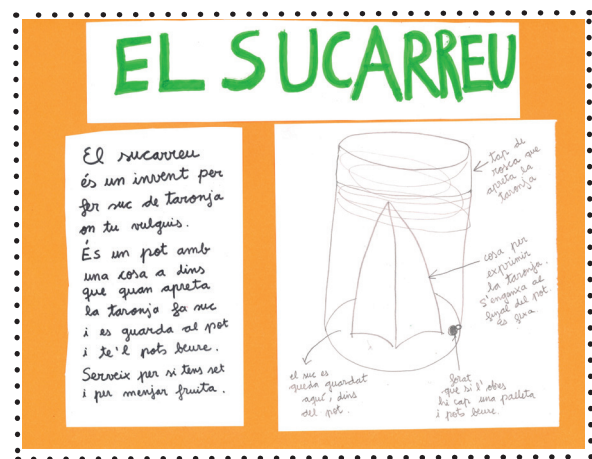 EL SUCARREU
El sucarreu
és un invent per
fer suc de taronja
on tu vulguis.
És un pot amb
una cosa a dins
que quan apreta
la taronja fa suc
i es guarda al pot
i te'l pots beure.
Serveix per si tens set
i per menjar fruita.
tap de
rosca que
apreta la
taronja
cosa per
exprimir
la taronja.
S'enganxa al
final del pot.
és fixa
el suc es
queda guardat
aquí, dins
del pot.
forat
que si l'obres
hi cap una palleta
i pots beure.